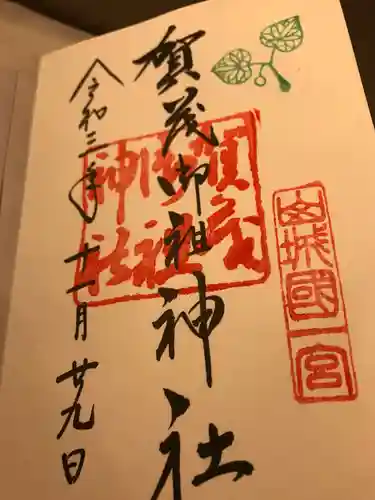 山城國一宮
賀茂御祖神社
賀茂御祖神社
令和三年十一月廿九日